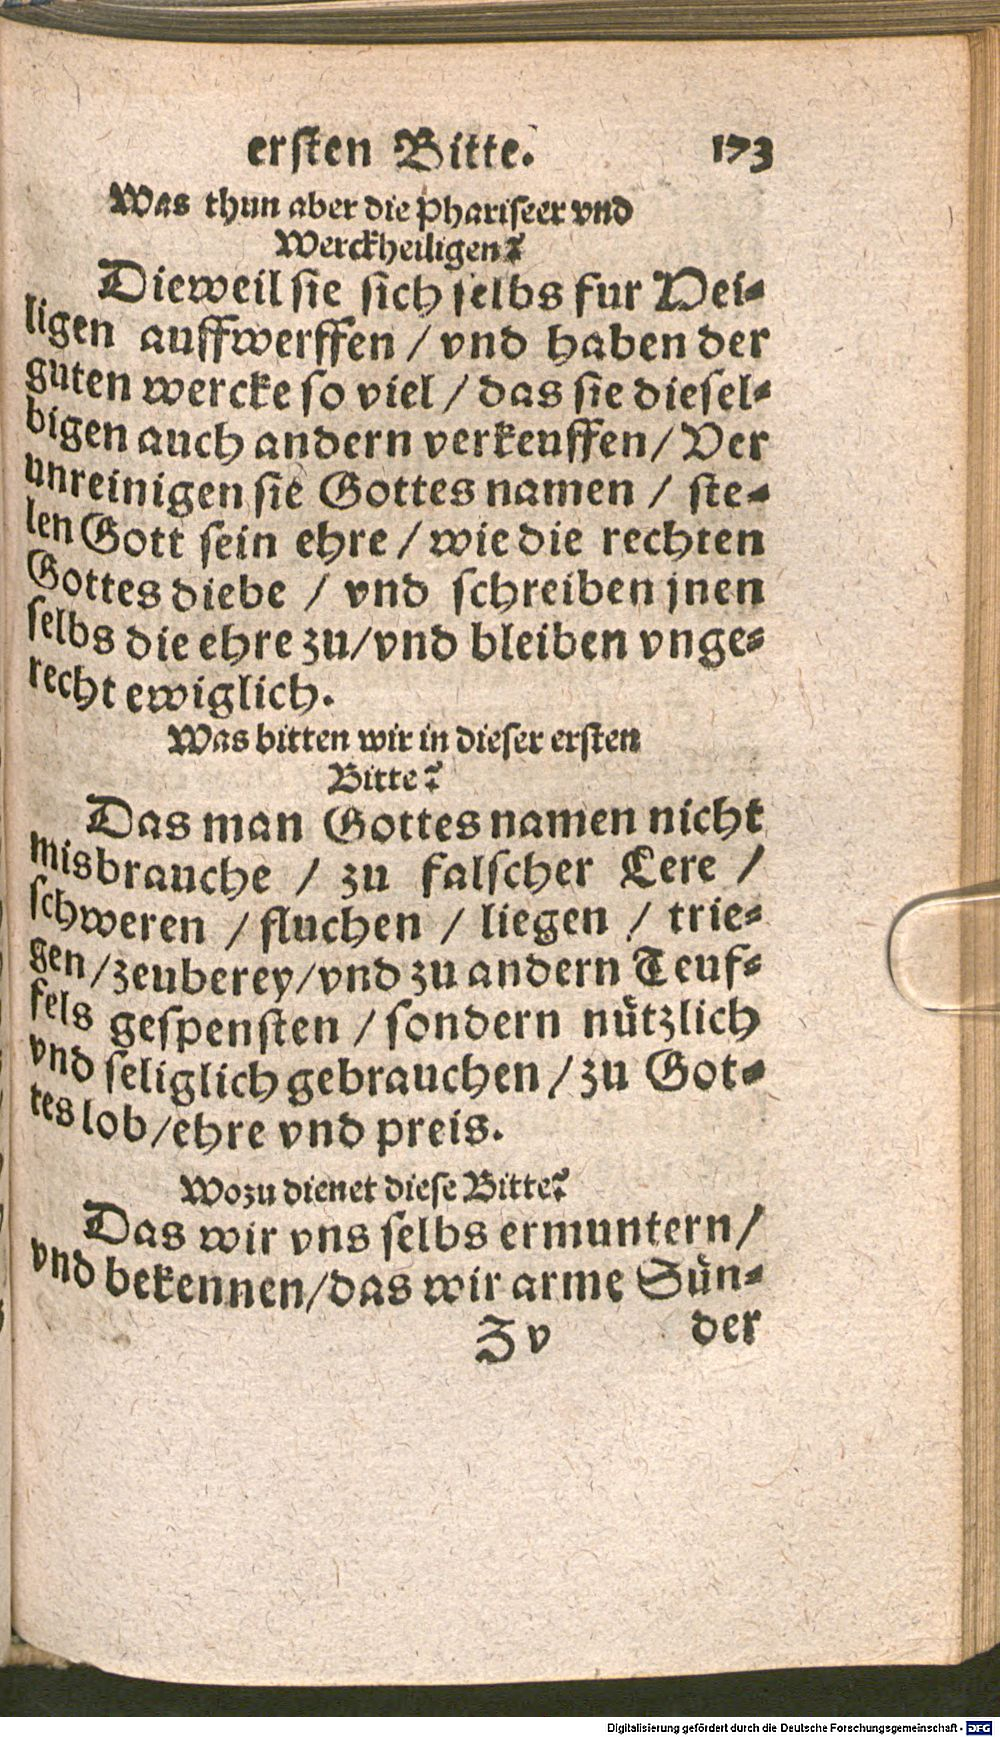 ersten Bitte. 173
Was thun aber die Phariseer vnd
Werckheiligen?
Dieweil sie sich selbs fur Hei-
ligen auffwerffen / vnd haben der
guten wercke so viel / das sie diesel-
bigen auch andern verkeuffen / Ver
unreinigen sie Gottes namen / ste-
len Gott sein ehre / wie die rechten
Gottes diebe / vnd schreiben jnen
selbs die ehre zu / vnd bleiben vnge-
recht ewiglich.
Was bitten wir in dieser ersten
Bitte?
Das man Gottes namen nicht
misbrauche / zu falscher Lere /
schweren / fluchen / liegen / trie-
gen / zeuberey / vnd zu andern Teuf-
fels gespensten / sondern nützlich
vnd seliglich gebrauchen / zu Got-
tes lob / ehre vnd preis.
Wozu dienet diese Bitte?
Das wir vns selbs ermuntern /
vnd bekennen / das wir arme Sün-
Z v der
Digitalisierung gefördert durch die Deutsche Forschungsgemeinschaft - DFG